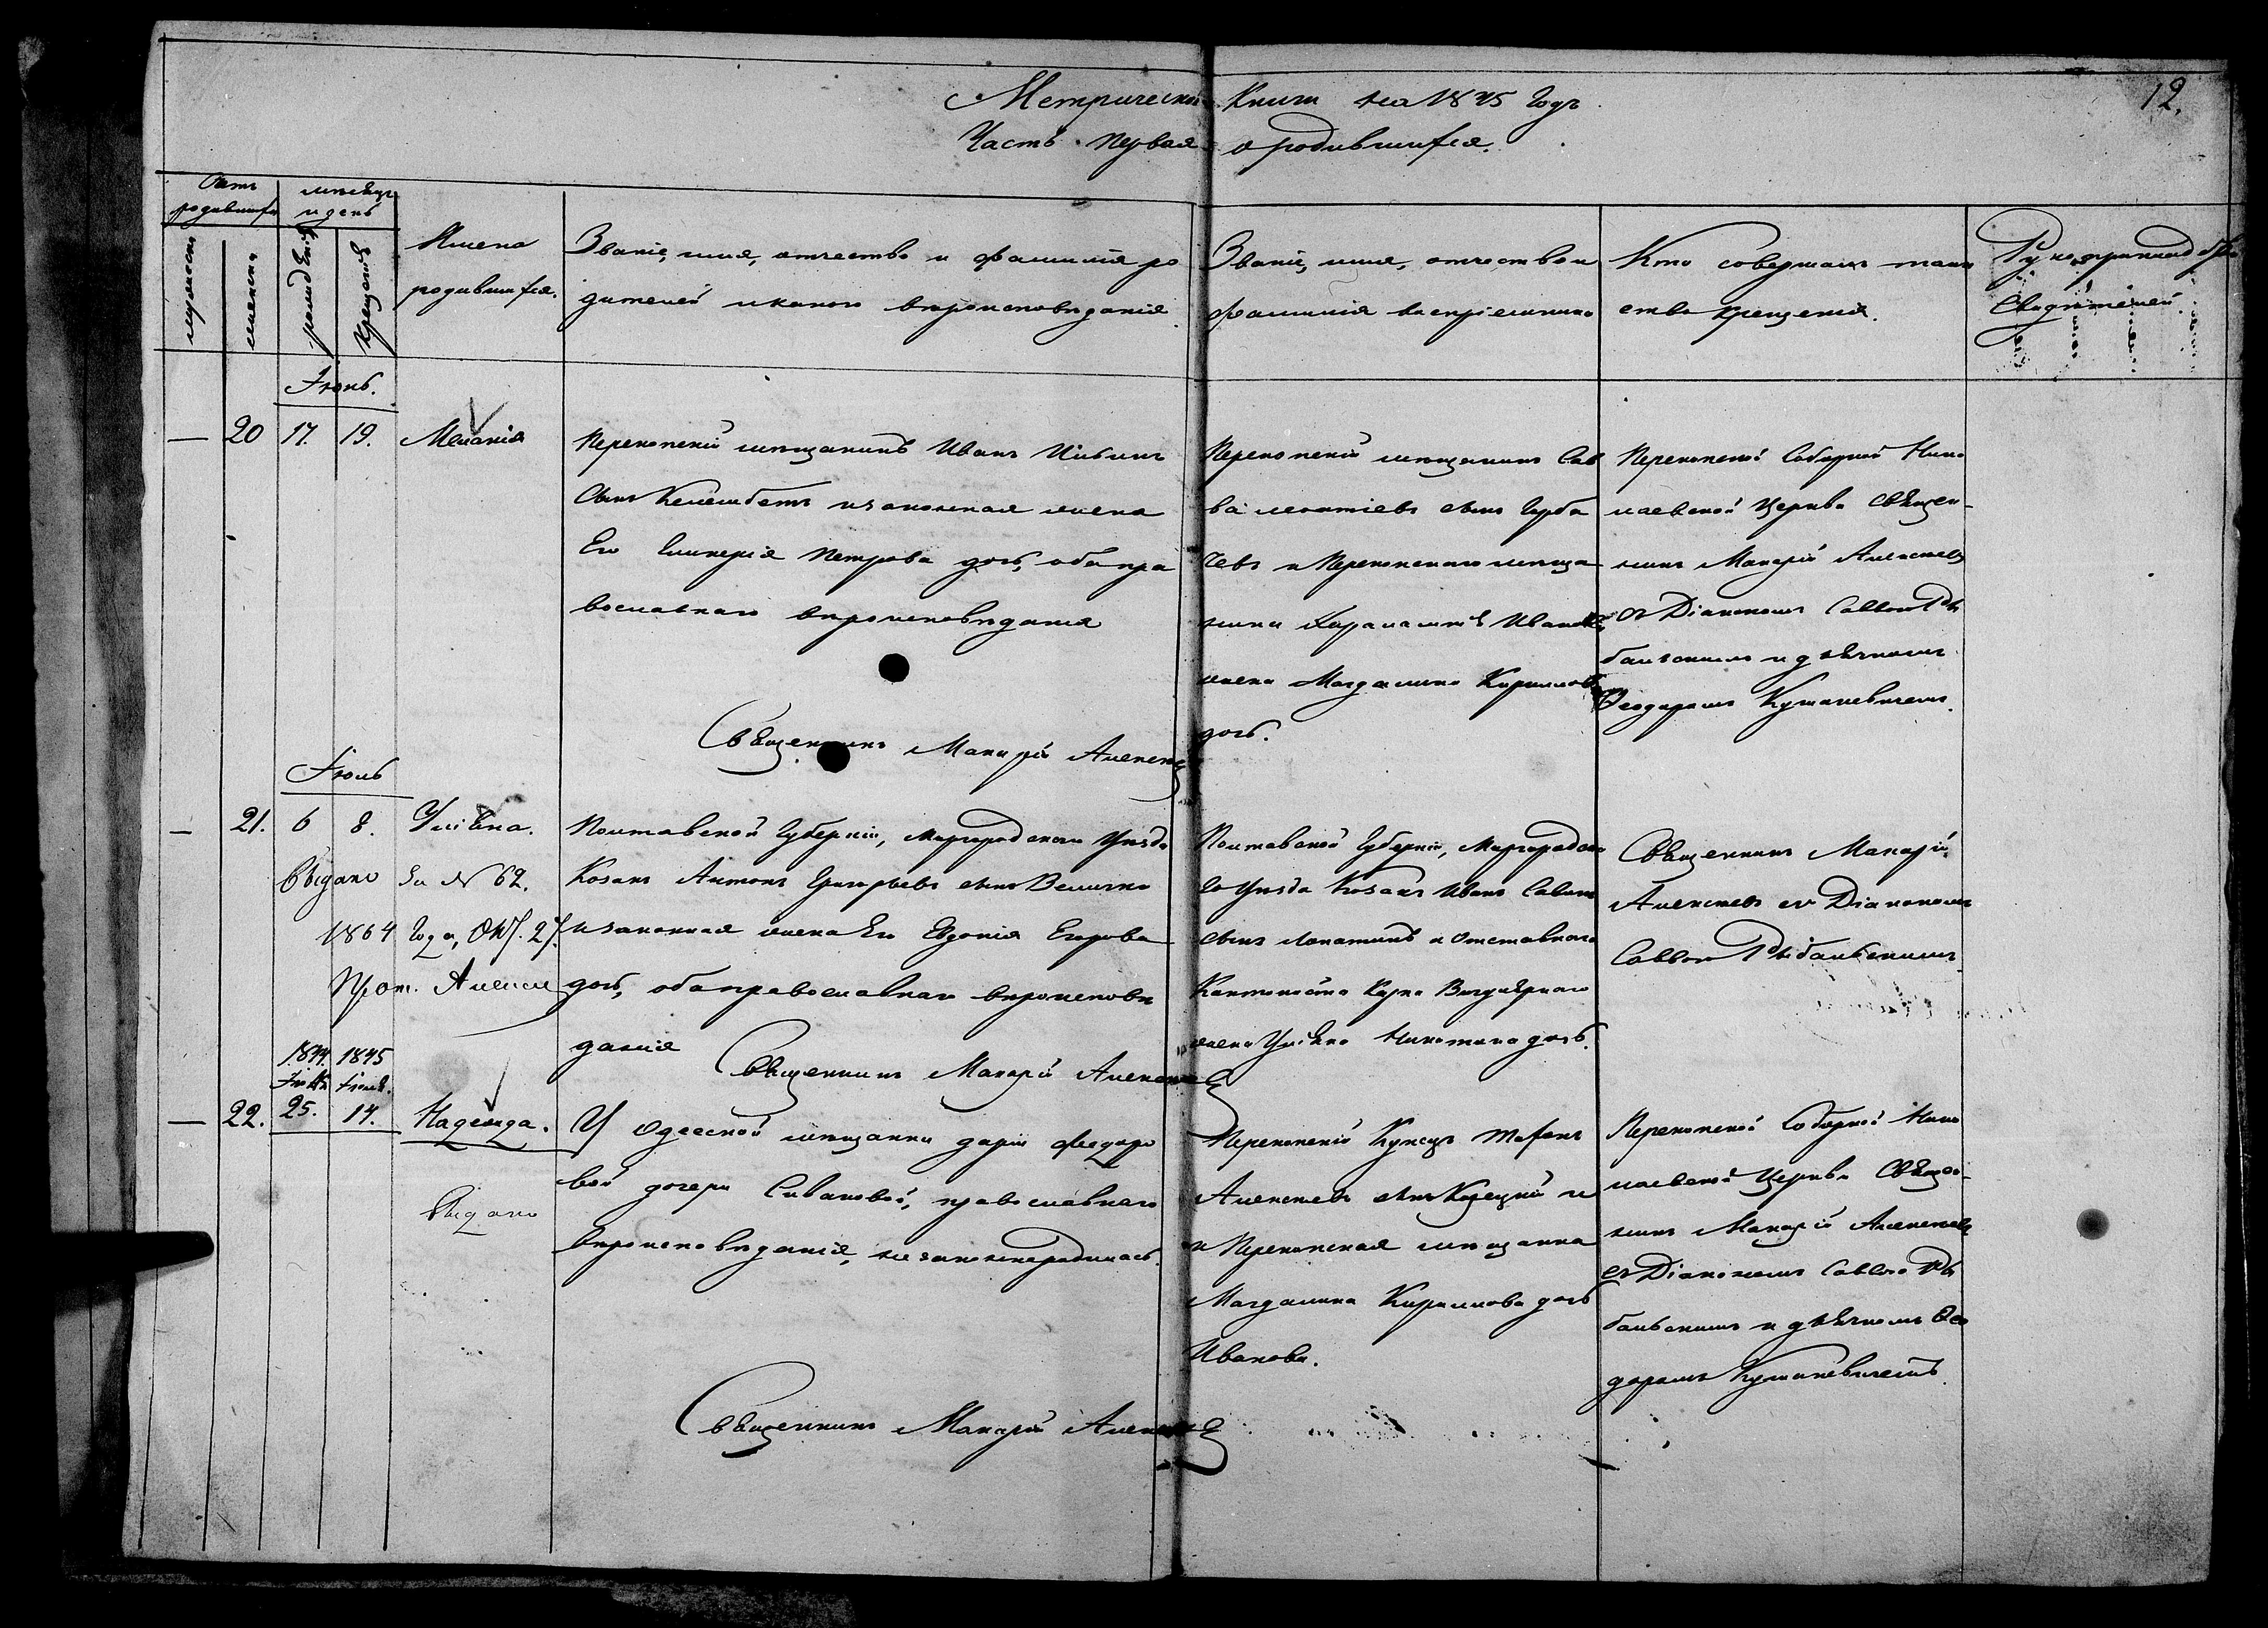 Метрической Книги на 1845 Годъ
12.
Часть первая о родившихся.
Счетъ родившихся
мужеска
женска
мѣсяцъ и день
рожденія
крещенія
Имена
родившихся.
Званіе, имя, отчество и фамилія ро
дителей и какого вѣроисповѣданія
Званіе, имя, отчество и
фамилія воспріемников
Кто совершалъ таин
ство крещенія.
Рукоприкладство
свидѣтелей
Іюнь.
— 20 17. 19. Меланія
Перекопскій мѣщанинъ Иванъ
сынъ и законная жена
Его Петрова дочь, оба пра
вославнаго вѣроисповѣданія
Священникъ Макарій Алексѣев
Перекопскій мѣщанинъ Сав
ва Леонтіевъ сынъ Горба
чевъ и Перекопскаго мѣща
нина Иванова
жена Магдалина Кириллова
дочь.
Перекопской Соборной Нико
лаевской Церкви Священ-
никъ Макарій Алексѣевъ
съ Діакономъ Саввою Ры
бальскимъ и дьячкомъ
Ѳеодоромъ Кушакевичемъ.
Іюль
— 21. 6 8. Уліяна.
Выдано за № 62.
1864 Года, Окт. 27.
Прот. Алексѣев
Полтавской Губерніи, Миргородскаго Уѣзда
Козакъ Антонъ Григорьевъ сынъ Величко
и законная жена Его Евдокія Егорова
дочь, оба православнаго вѣроисповѣ
данія
Священникъ Макарій Алексѣев
Полтавской Губерніи, Миргородска
го Уѣзда Козакъ Иванъ Савинъ
сынъ Лопатинъ и Отставнаго
жена Уліяна Никитина дочь.
Священникъ Макарій
Алексѣевъ съ Діакономъ
Саввою Рыбальскимъ.
1844 1845
Іюля Іюля.
— 22. 25. 14. Надежда.
Выдано
У Одесской мѣщанки Даріи Федоро
вой дочери Сиваковой, православнаго
вѣроисповѣданія, незаконнорродилась.
Священникъ Макарій Алексѣев
Перекопскій Купецъ
Алексѣевъ сынъ и
и Перекопская мѣщанка
Магдалина Кириллова дочь
Иванова.
Перекопской Соборной Нико
лаевской Церкви Священ-
никъ Макарій Алексѣевъ
съ Діакономъ Саввою Ры
бальскимъ и дьячкомъ Ѳео
доромъ Кушакевичемъ.